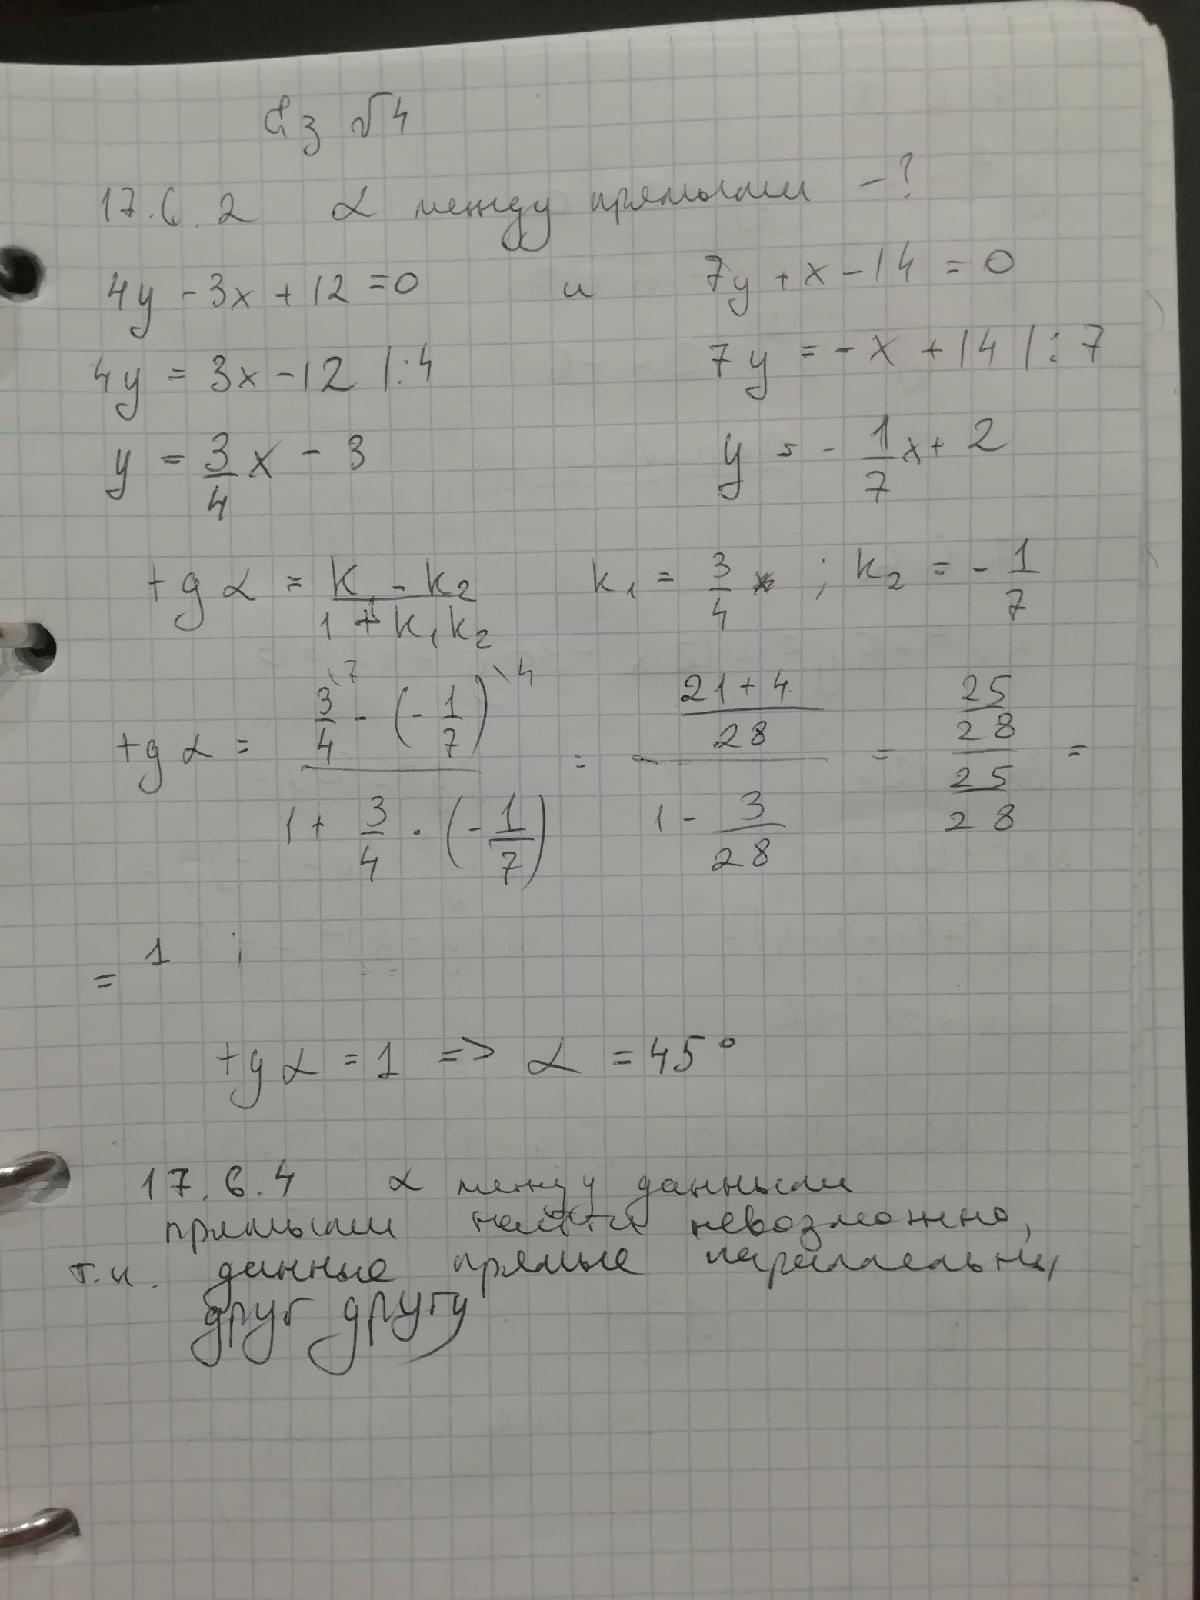 Дз √4
17.6.2 α между прямыми -?
4y - 3x + 12 = 0 и 7y + x - 14 = 0
4y = 3x - 12 |:4 7y = - x + 14 |:7
y = 3/4 x - 3 y = - 1/7 x + 2
tg α = (k₁ - k₂)/(1 + k₁k₂) k₁ = 3/4 ; k₂ = - 1/7
tg α = (3/4 \7 - (- 1/7) \4)/(1 + 3/4 · (- 1/7)) = ((21 + 4)/28)/(1 - 3/28) = (25/28)/(25/28) =
= 1 ;
tg α = 1 => α = 45°
17.6.4 α между данными
прямыми найти невозможно,
т.к. данные прямые параллельны
друг другу